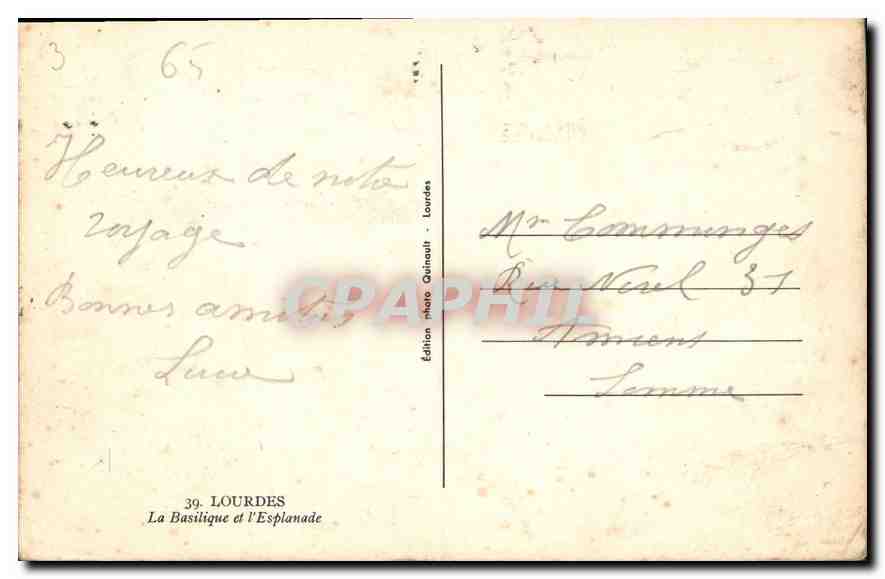 3
65
Heureux de notre
voyage
Bonnes amitiés
Luce
Édition photo Quinault - Lourdes
39. LOURDES
La Basilique et l'Esplanade
CPAPHIL
Mr Comminges
Rue Nerel 31
Amiens
Somme